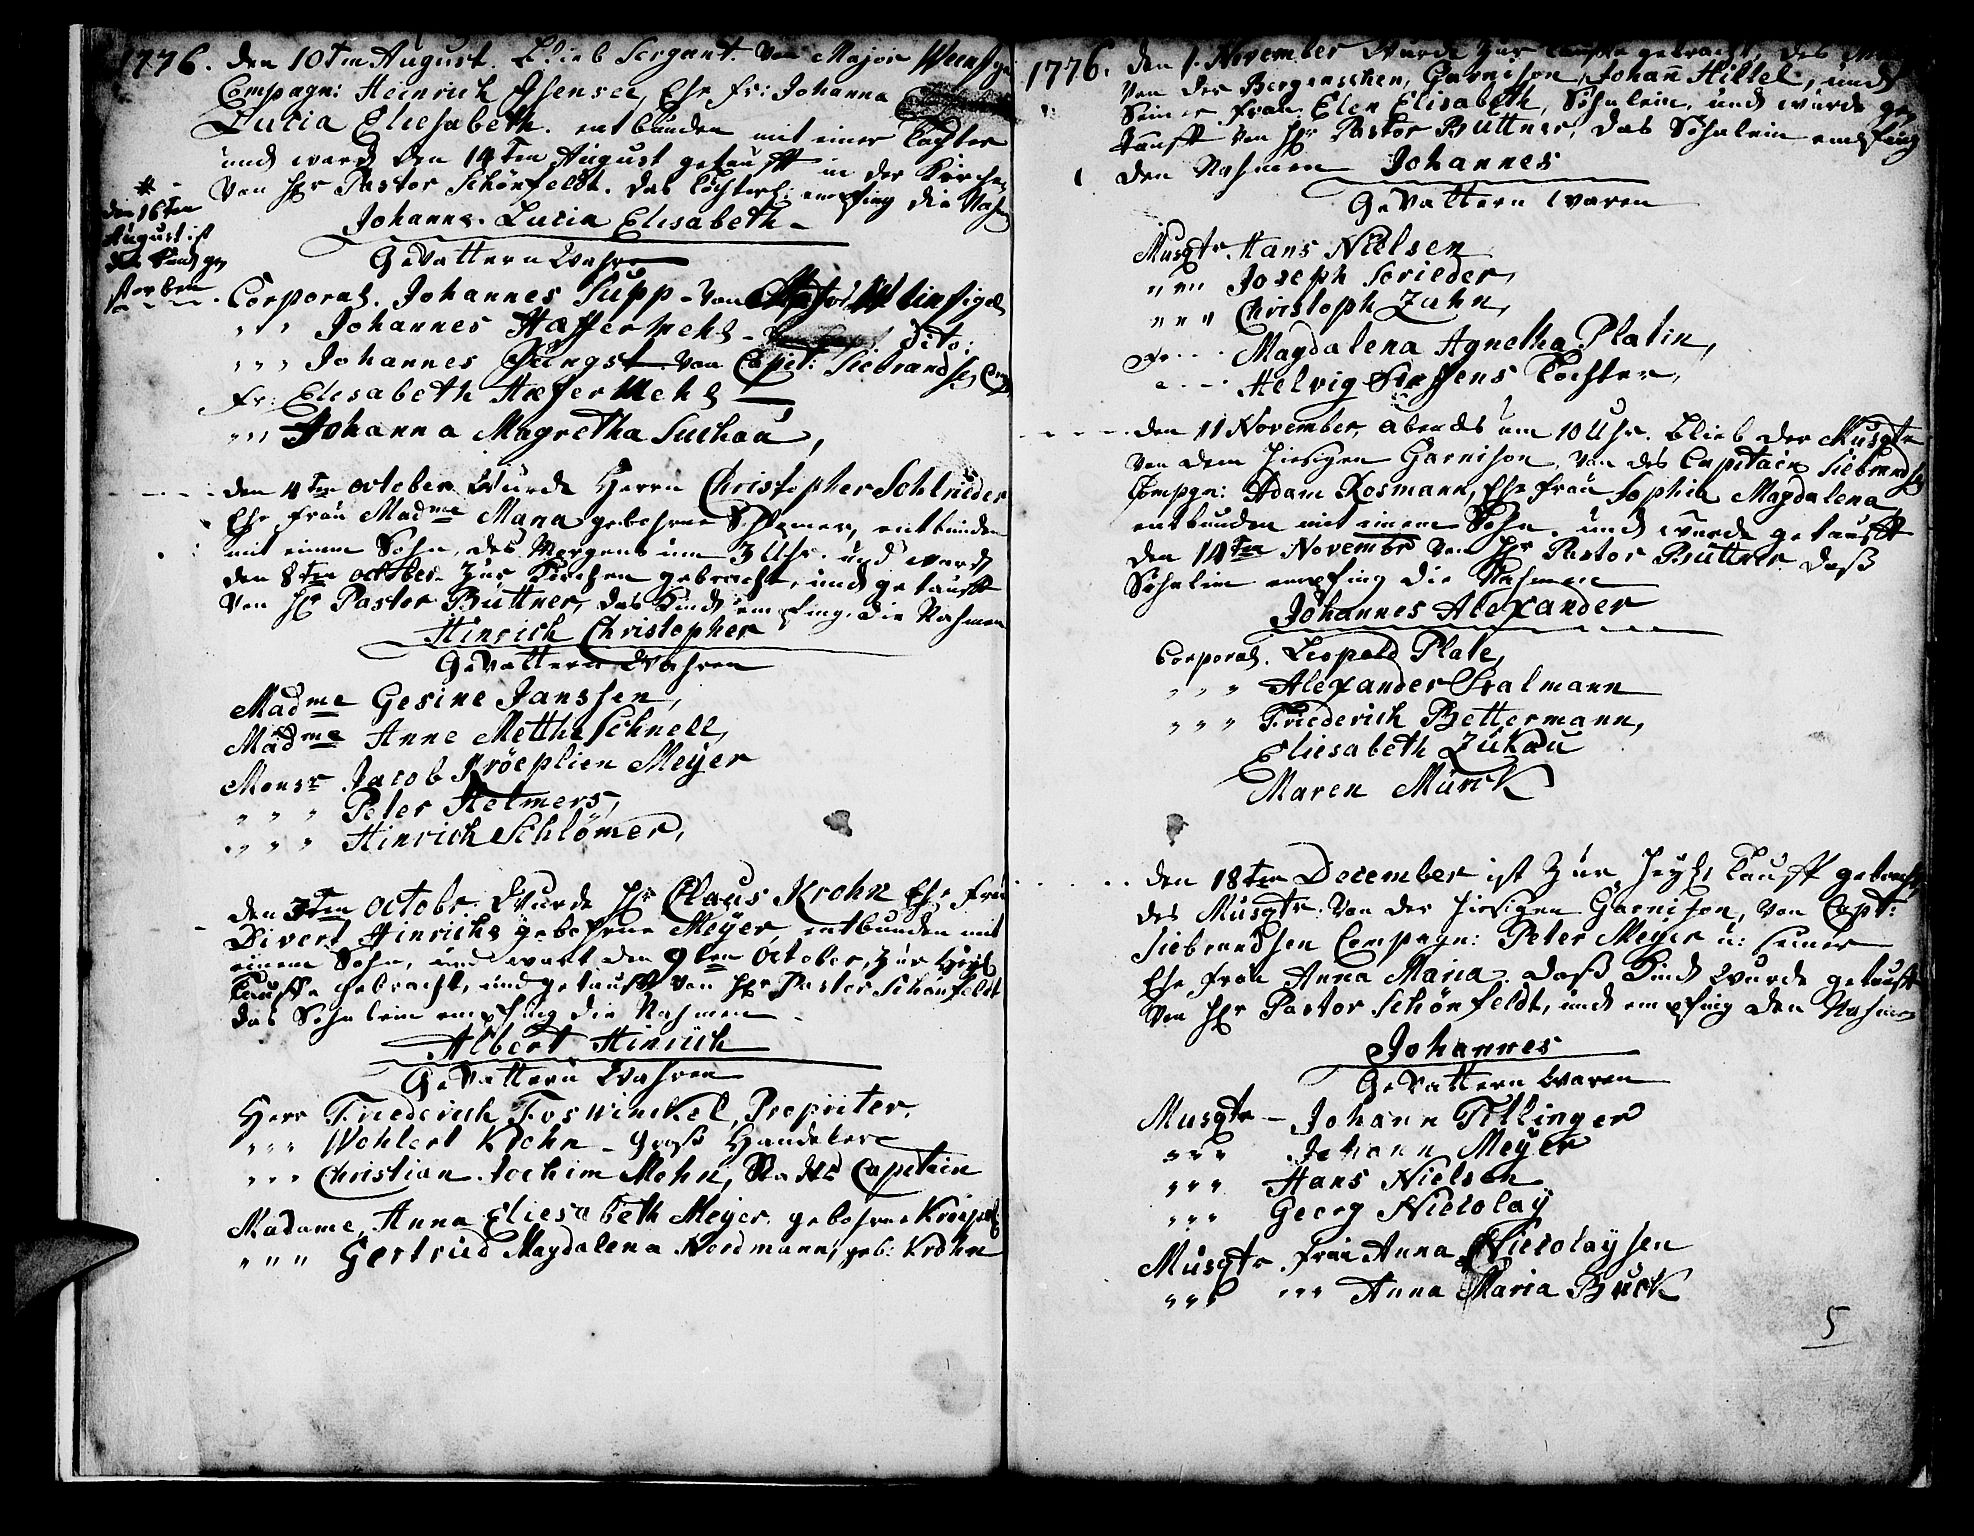 1776. den 10ten August. blieb Sergant. von Major
Compagn: Heinrich Isensee, Ehe fr: Johanna
Lucia Eliesabeth. entbunden mit einer Tochter
und ward den 14ten August getaufft in der Kirche,
von Hr Pastor Schönfeldt. das Töchterl: empfing die Nahm
Johanna. Lucia Elisabeth
# den 16ten
August ist
das Kind ge
storben
Gevattern Wahren
Corporal. Johannes Supp - von
" " " Johannes Hæffermehl - Dito:
" " " Johannes Jüngst von Capit: Siebrandsen Comp
Fr: Elisabeth Hæfermehl
" " " Johanna Magretha Suchau,
den 4ten october Wurde Herrn Christopher Schlrieder
Ehe frau Madme Maria gebohrne entbunden
mit einem Sohn, des Morgens um 3 Uhr. und ward
den 8ten october. zur Kirchen gebracht, und getaufft
von Hr Pastor Büttner, das Kind empfing die Nahmen
Hinrich Christopher
Gevattern Wahren
Madme Gesine Janssen,
Madme Anne Metthe Schnell,
Monsr Jacob Kröeplien Meÿer
" " " Peter Helmers,
" " " Hinrich Schlömer,
den 3ten octobr. Wurde Hr Claus Krohn Ehe frau
Divert Hinrichs gebohrne Meÿer, entbunden mit
einem Sohn, und wart den 9ten october, zur Heyl
Tauffe gebracht, und getaufft von Hr Pastor Schönfeldt
das Sohnlein empfing die Nahmen
Albert Hinrich
Gevattern Wahren
Herr Friederich Foswinckel, Propriter,
" " " Wohlert Krohn - Groß Händeler
" " " Christian Jochim Mohn, Stadts Capitain
Madame, Anna Eliesabeth Meÿer. gebohrne
" " " Gertrued Magdalena Nordmann, geb: Krohn
1776. den 1. November Wurde zur Tauffe gebracht, des
von der Bergenschen, Garnison, Johann Hillel, und
Seiner frau Elen Elisabeth, Söhnlein, und wurde ge
taufft von Hr Pastor Büttner, das Söhnlein empfing
den Nahmen Johannes
Gevattern waren
Musqtr Hans Nielsen
" " " Joseph Srieder,
" " " Christoph Zahn,
Fr. Magdalena Agnetha Platin,
Helvig Steffens Tochter,
den 11 November, abends um 10 Uhr. blieb der Musqtr
von dem hiesigen Garnison, von des Capitain Siebrandsen
Compgn: Adam Rosmann, Ehe frau Sophia Magdalena,
entbunden mit einem Sohn. und wurde getaufft
den 14ten Novembr von Hr Pastor Büttner daß
Söhnlein empfing die Nahmen
Johannes Alexander
Corporal. Leopold Plate,
" " " Alexander Stalmann
" " " Friederich Bettermann,
Eliesabeth Zükau
Maren Münk
den 18ten December ist zur Heyl Taufft gebracht
des Musqtr von der hiesigen Garnison, von Capt:
Siebrandsen Compagn: Peter Meÿer u: seiner
Ehe frau Anna Maria. daß Kind Wurde getaufft
von Hr Pastor Schönfeldt, und empfing den Nahmen
Johannes
Gevattern waren
Musqtr - Johann Titlinger
" " " Johann Meÿer
" " " Hans Nielsen
" " " Georg Nicolaÿ
Musqtr frau Anna Nicolaysen
" " " " " " Anna Maria Buck
5